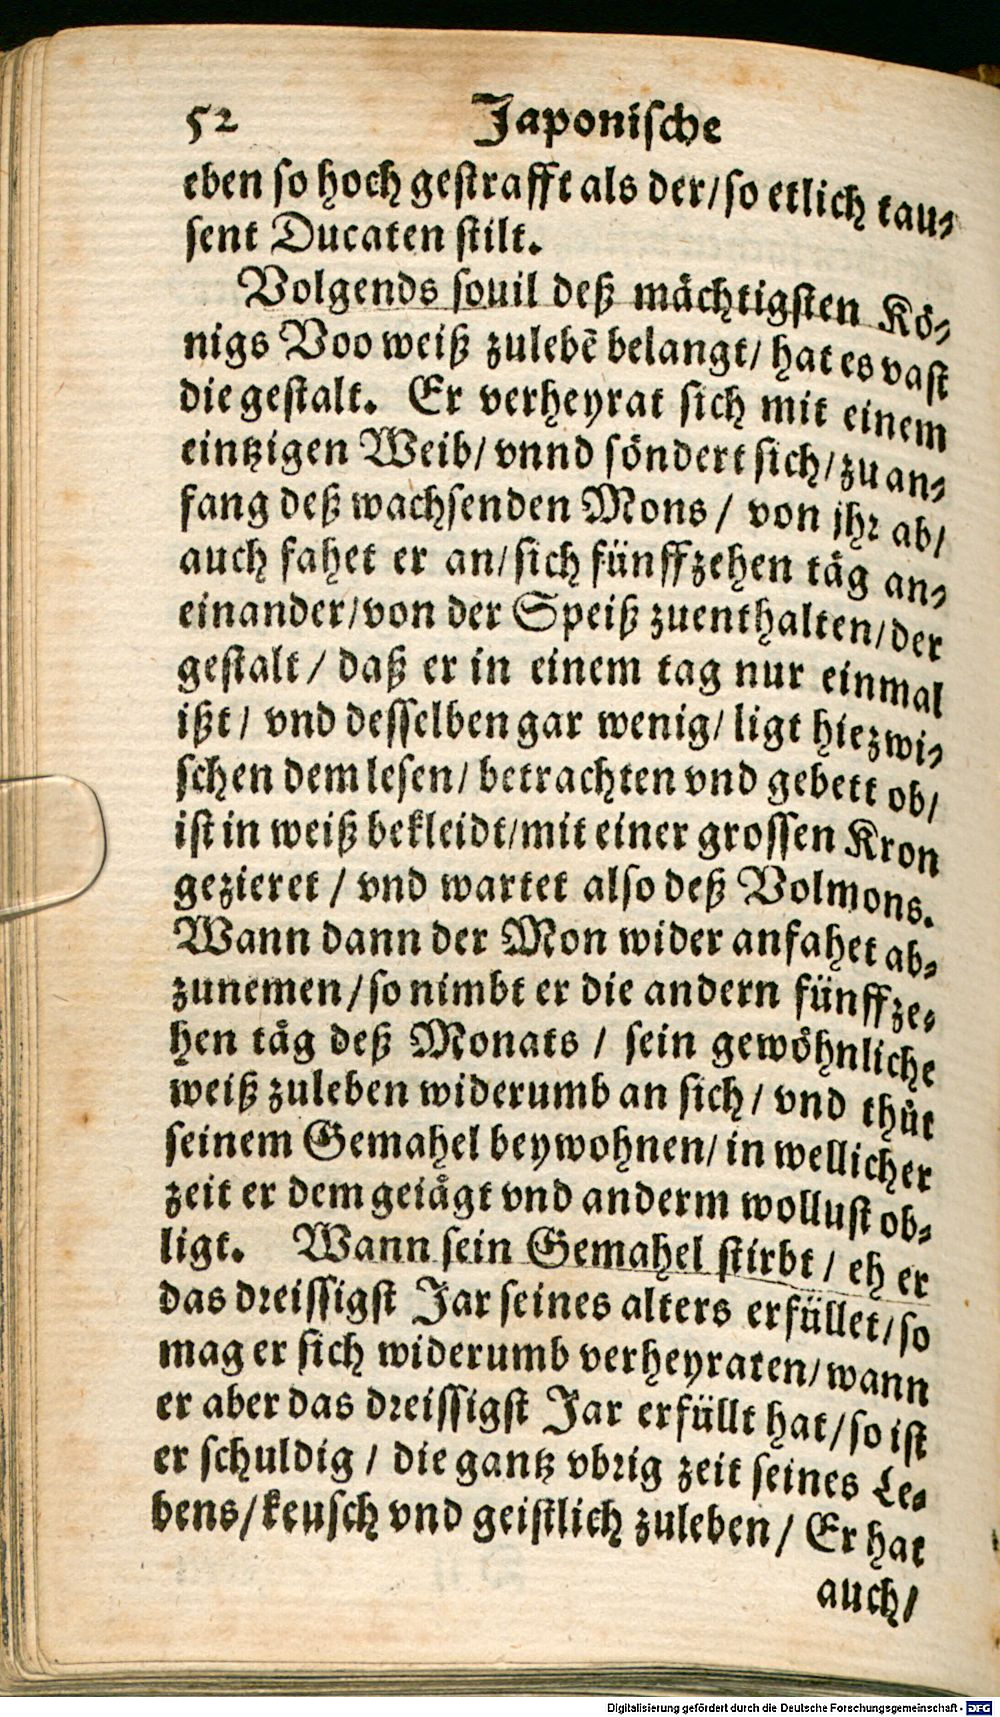 52 Japonische
eben so hoch gestrafft als der/ so etlich tau⸗
sent Ducaten stilt.
Volgends souil deß mächtigsten Kö⸗
nigs Voo weiß zulebẽ belangt/ hat es vast
die gestalt. Er verheyrat sich mit einem
eintzigen Weib/ vnnd söndert sich/ zu an⸗
fang deß wachsenden Mons / von jhr ab/
auch fahet er an/ sich fünffzehen täg an⸗
einander/ von der Speiß zuenthalten/ der
gestalt / daß er in einem tag nur einmal
ißt/ vnd desselben gar wenig/ ligt hiezwi⸗
schen dem lesen/ betrachten vnd gebett ob/
ist in weiß bekleidt/ mit einer grossen Kron
gezieret / vnd wartet also deß Volmons.
Wann dann der Mon wider anfahet ab⸗
zunemen/ so nimbt er die andern fünffze⸗
hen täg deß Monats / sein gewöhnliche
weiß zuleben widerumb an sich/ vnd thůt
seinem Gemahel beywohnen/ in wellicher
zeit er dem geiägt vnd anderm wollust ob⸗
ligt. Wann sein Gemahel stirbt / eh er
das dreissigst Jar seines alters erfüllet/ so
mag er sich widerumb verheyraten/ wann
er aber das dreissigst Jar erfüllt hat/ so ist
er schuldig / die gantz vbrig zeit seines Le⸗
bens/ keusch vnd geistlich zuleben/ Er hat
auch/
Digitalisierung gefördert durch die Deutsche Forschungsgemeinschaft - DFG